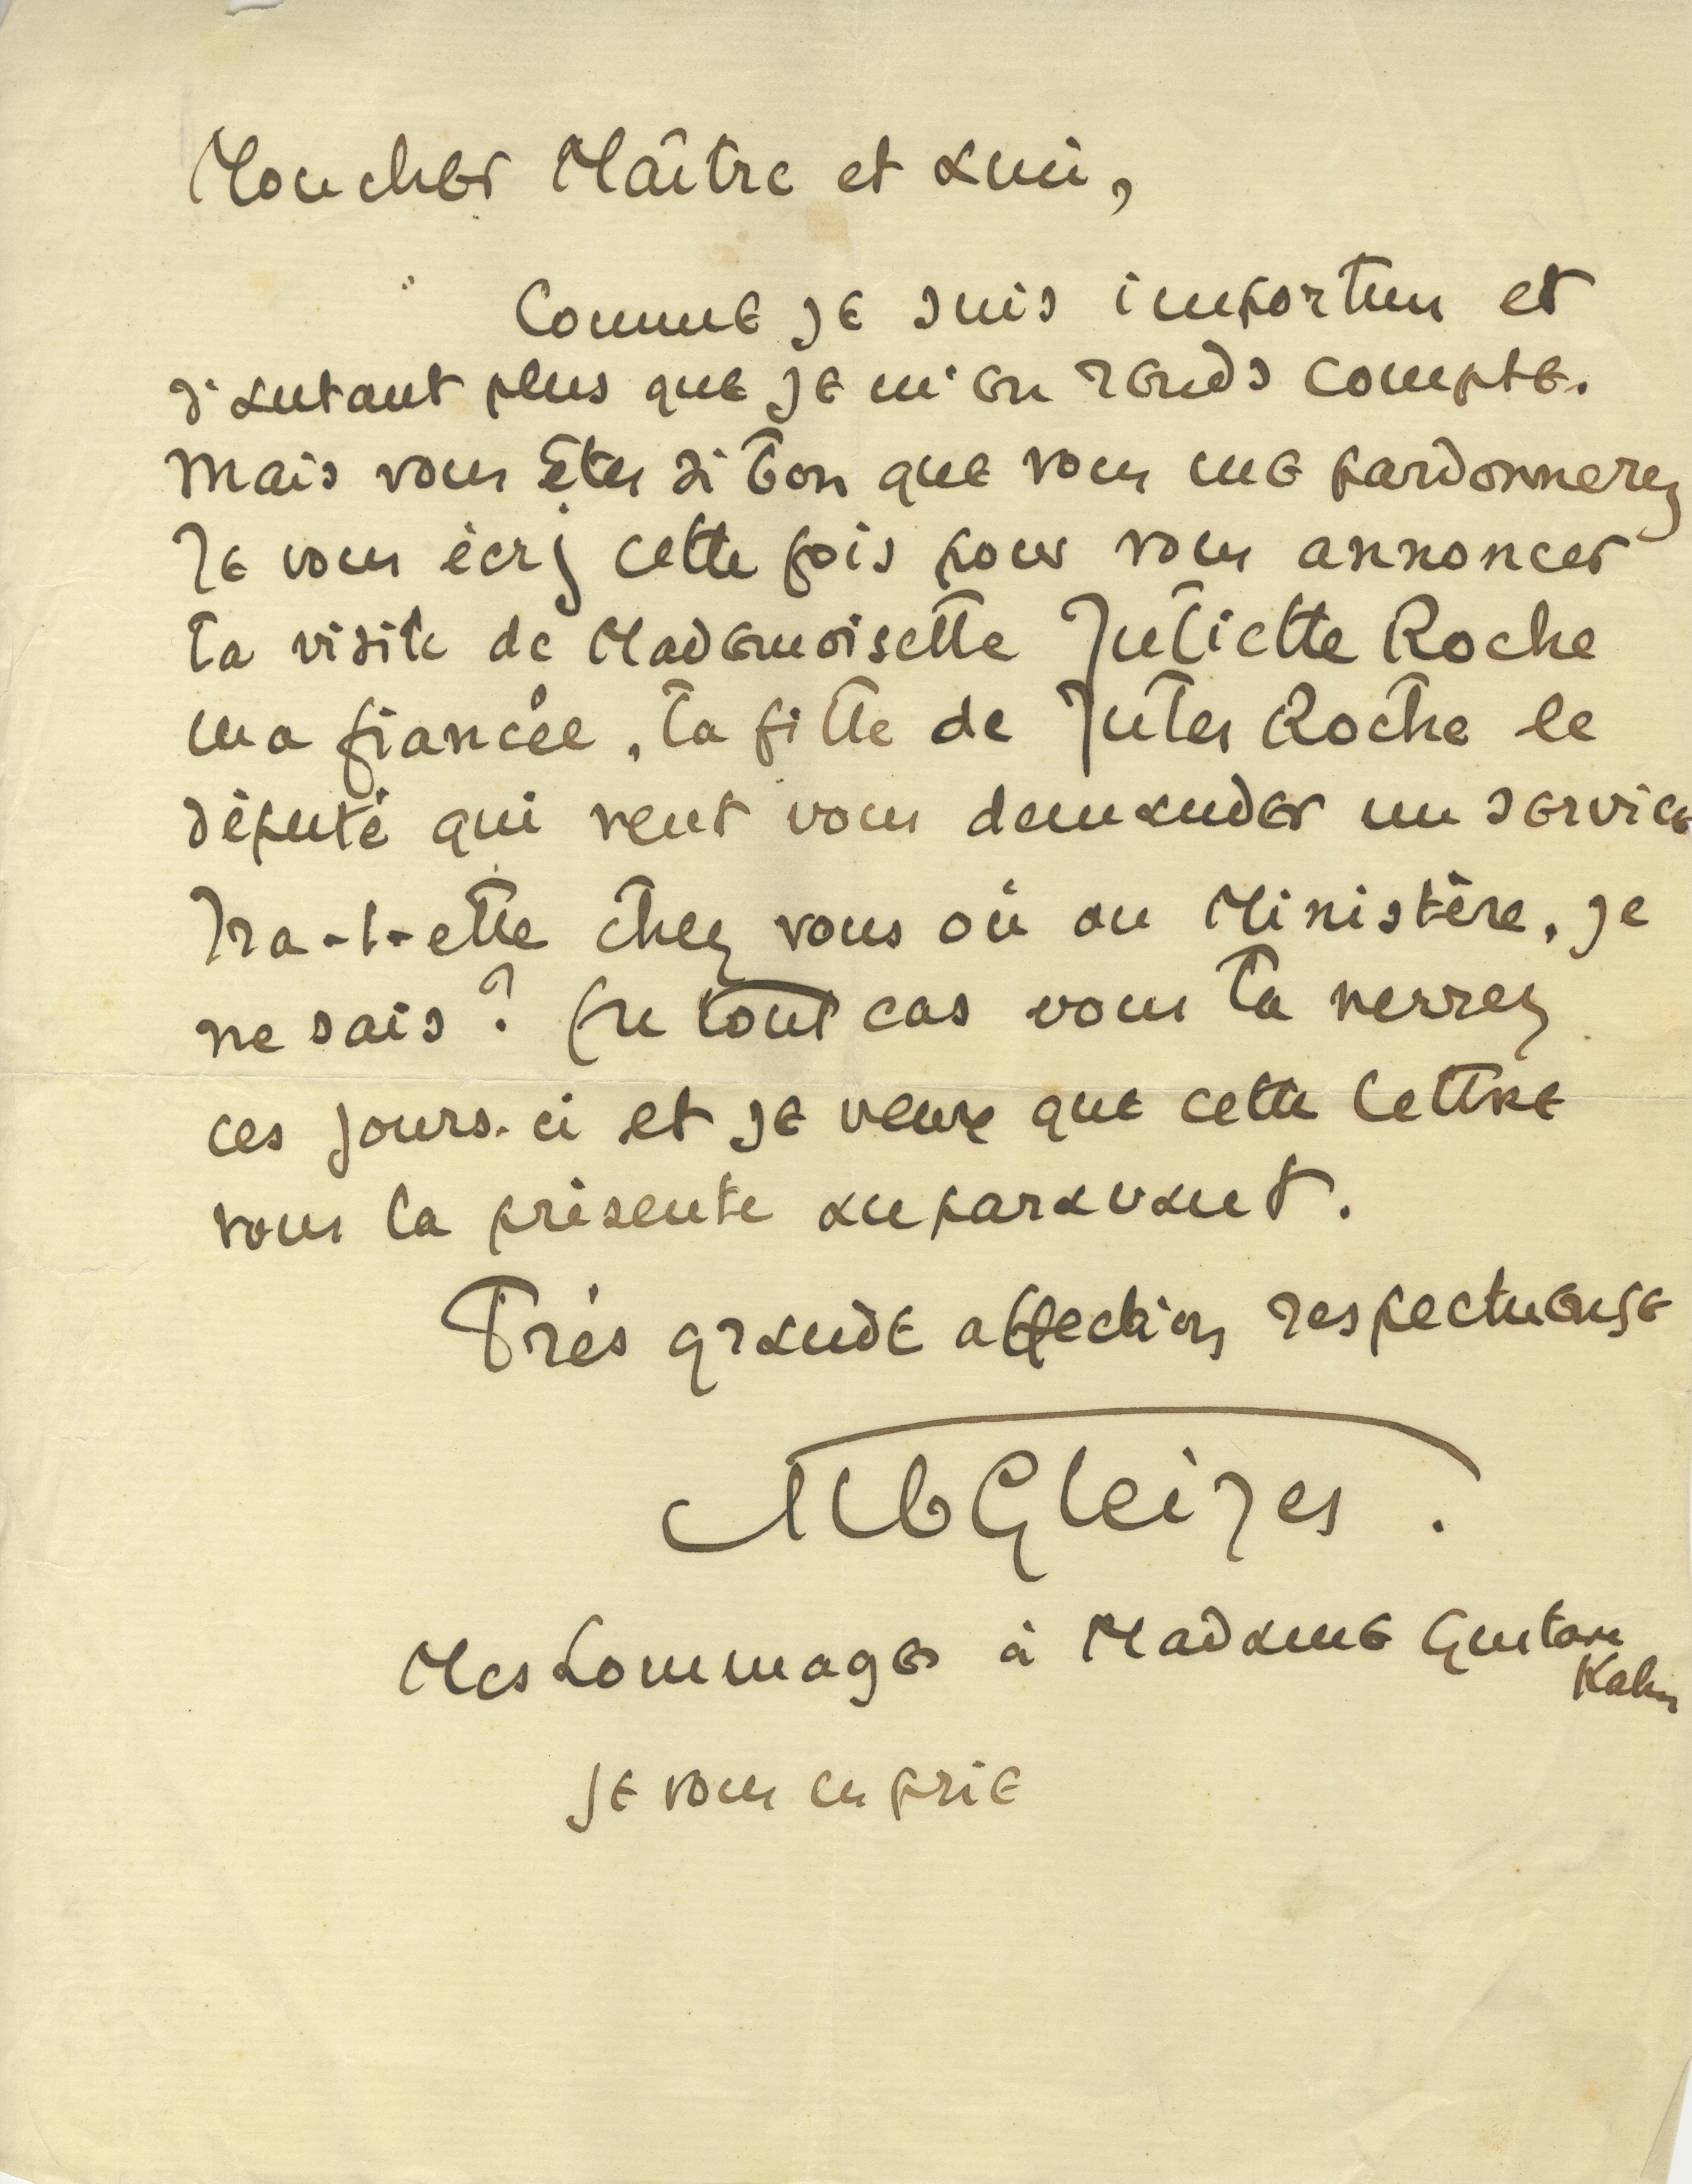 Mon cher Maître et ami,
Comme je suis importun et
d'autant plus que je m'en rends compte.
Mais vous êtes si bon que vous me pardonnerez
Je vous écris cette fois pour vous annoncer
la visite de Mademoiselle Juliette Roche
ma fiancée, la fille de Jules Roche le
député qui veut vous demander un service
Ira-t-elle chez vous où au Ministère, je
ne sais ? En tout cas vous la verrez
ces jours-ci et je veux que cette lettre
vous la présente auparavant.
Très grande affection respectueuse
Alb Gleizes.
Mes hommages à Madame Gustave
Kahn
je vous en prie